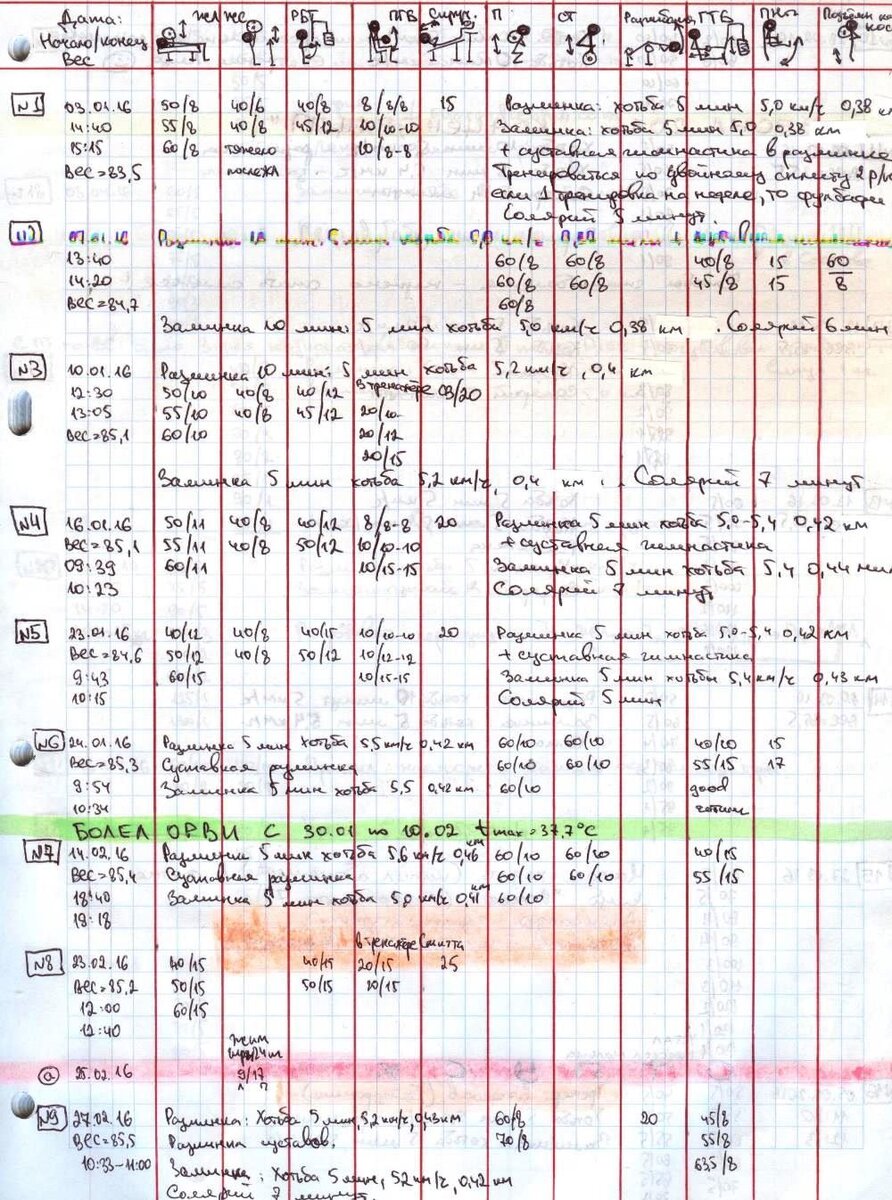 Дата: ЖЛ ЖС РБТ ПТВ Скруч. П СТ Разгибания ГТБ ПНБ Подъём на
Начало/конец
Вес
N1 03.01.16 50/8 40/6 40/8 8/8/8 15 Разминка: хотьба 5 мин 5,0 км/ч 0,38 к
14:40 55/8 40/8 45/12 10/10-10 Заминка: хотьба 5 мин 5,0 0,38 км
15:15 60/8 тяжело 10/8-8 + суставная гимнастика в разминке
Вес=83,5 Тренироваться по двойному сплиту 2 р/н
если 1 тренировка на неделе, то фулбади
Солярий 5 минут.
N2 07.01.16
13:40 60/8 60/8 40/8 15 60
14:20 60/8 60/8 45/8 15 8
Вес=84,7 60/8
Заминка 10 мин: 5 мин хотьба 5,0 км/ч 0,38 км . Солярий 6 мин
N3 10.01.16 Разминка 10 мин: 5 мин хотьба 5,2 км/ч, 0,4 км
12:30 50/10 40/8 40/12 в тренажере 03/20
13:05 55/10 40/8 45/12 20/10
Вес=85,1 60/10 20/12
20/15
Заминка 5 мин хотьба 5,2 км/ч, 0,4 км . Солярий 7 минут
N4 16.01.16 50/11 40/8 40/12 8/8-8 20 Разминка 5 мин хотьба 5,0-5,4 0,42 км
Вес=85,1 55/11 40/8 50/12 10/10-10 + суставная гимнастика
09:39 60/11 10/15-15 Заминка 5 мин хотьба 5,4 0,44
10:23 Солярий 7 минут
N5 23.01.16 40/12 40/8 40/15 10/10-10 20 Разминка 5 мин хотьба 5,0-5,4 0,42 км
Вес=84,6 50/12 40/8 50/12 10/12-12 + суставная гимнастика
9:43 60/15 10/15-15 Заминка 5 мин хотьбы 5,4 км/ч 0,43 км
10:15 Солярий 5 мин
N6 24.01.16 Разминка 5 мин хотьба 5,5 км/ч 0,42 км 60/10 60/10 40/10 15
Вес=85,3 Суставная разминка 60/10 60/10 55/15 17
9:54 Заминка 5 мин хотьба 5,5 0,42 км 60/10 good
10:34
БОЛЕЛ ОРВИ С 30.01 по 10.02 t max = 37,7°C
N7 14.02.16 Разминка 5 мин хотьба 5,6 км/ч 0,46 км 60/10 60/10 40/15
Вес=85,4 Суставная разминка 60/10 60/10 55/15
18:40 Заминка 5 мин хотьба 5,0 км/ч 0,41 км 60/10
19:18
в тренажере Смитта
N8 23.02.16 40/15 40/15 20/15 25
Вес=85,2 50/15 50/15 20/15
12:00 60/15
12:40
жим
а 25.02.16 9/17
Л П
N9 27.02.16 Разминка: Хотьба 5 мин, 5,2 км/ч, 0,43 км 60/8 20 45/8
Вес=85,5 Разминка суставов. 70/8 55/8
10:33-11:00 635/8
Заминка: Хотьба 5 мин, 5,2 км/ч, 0,42 км
Солярий 7 минут.